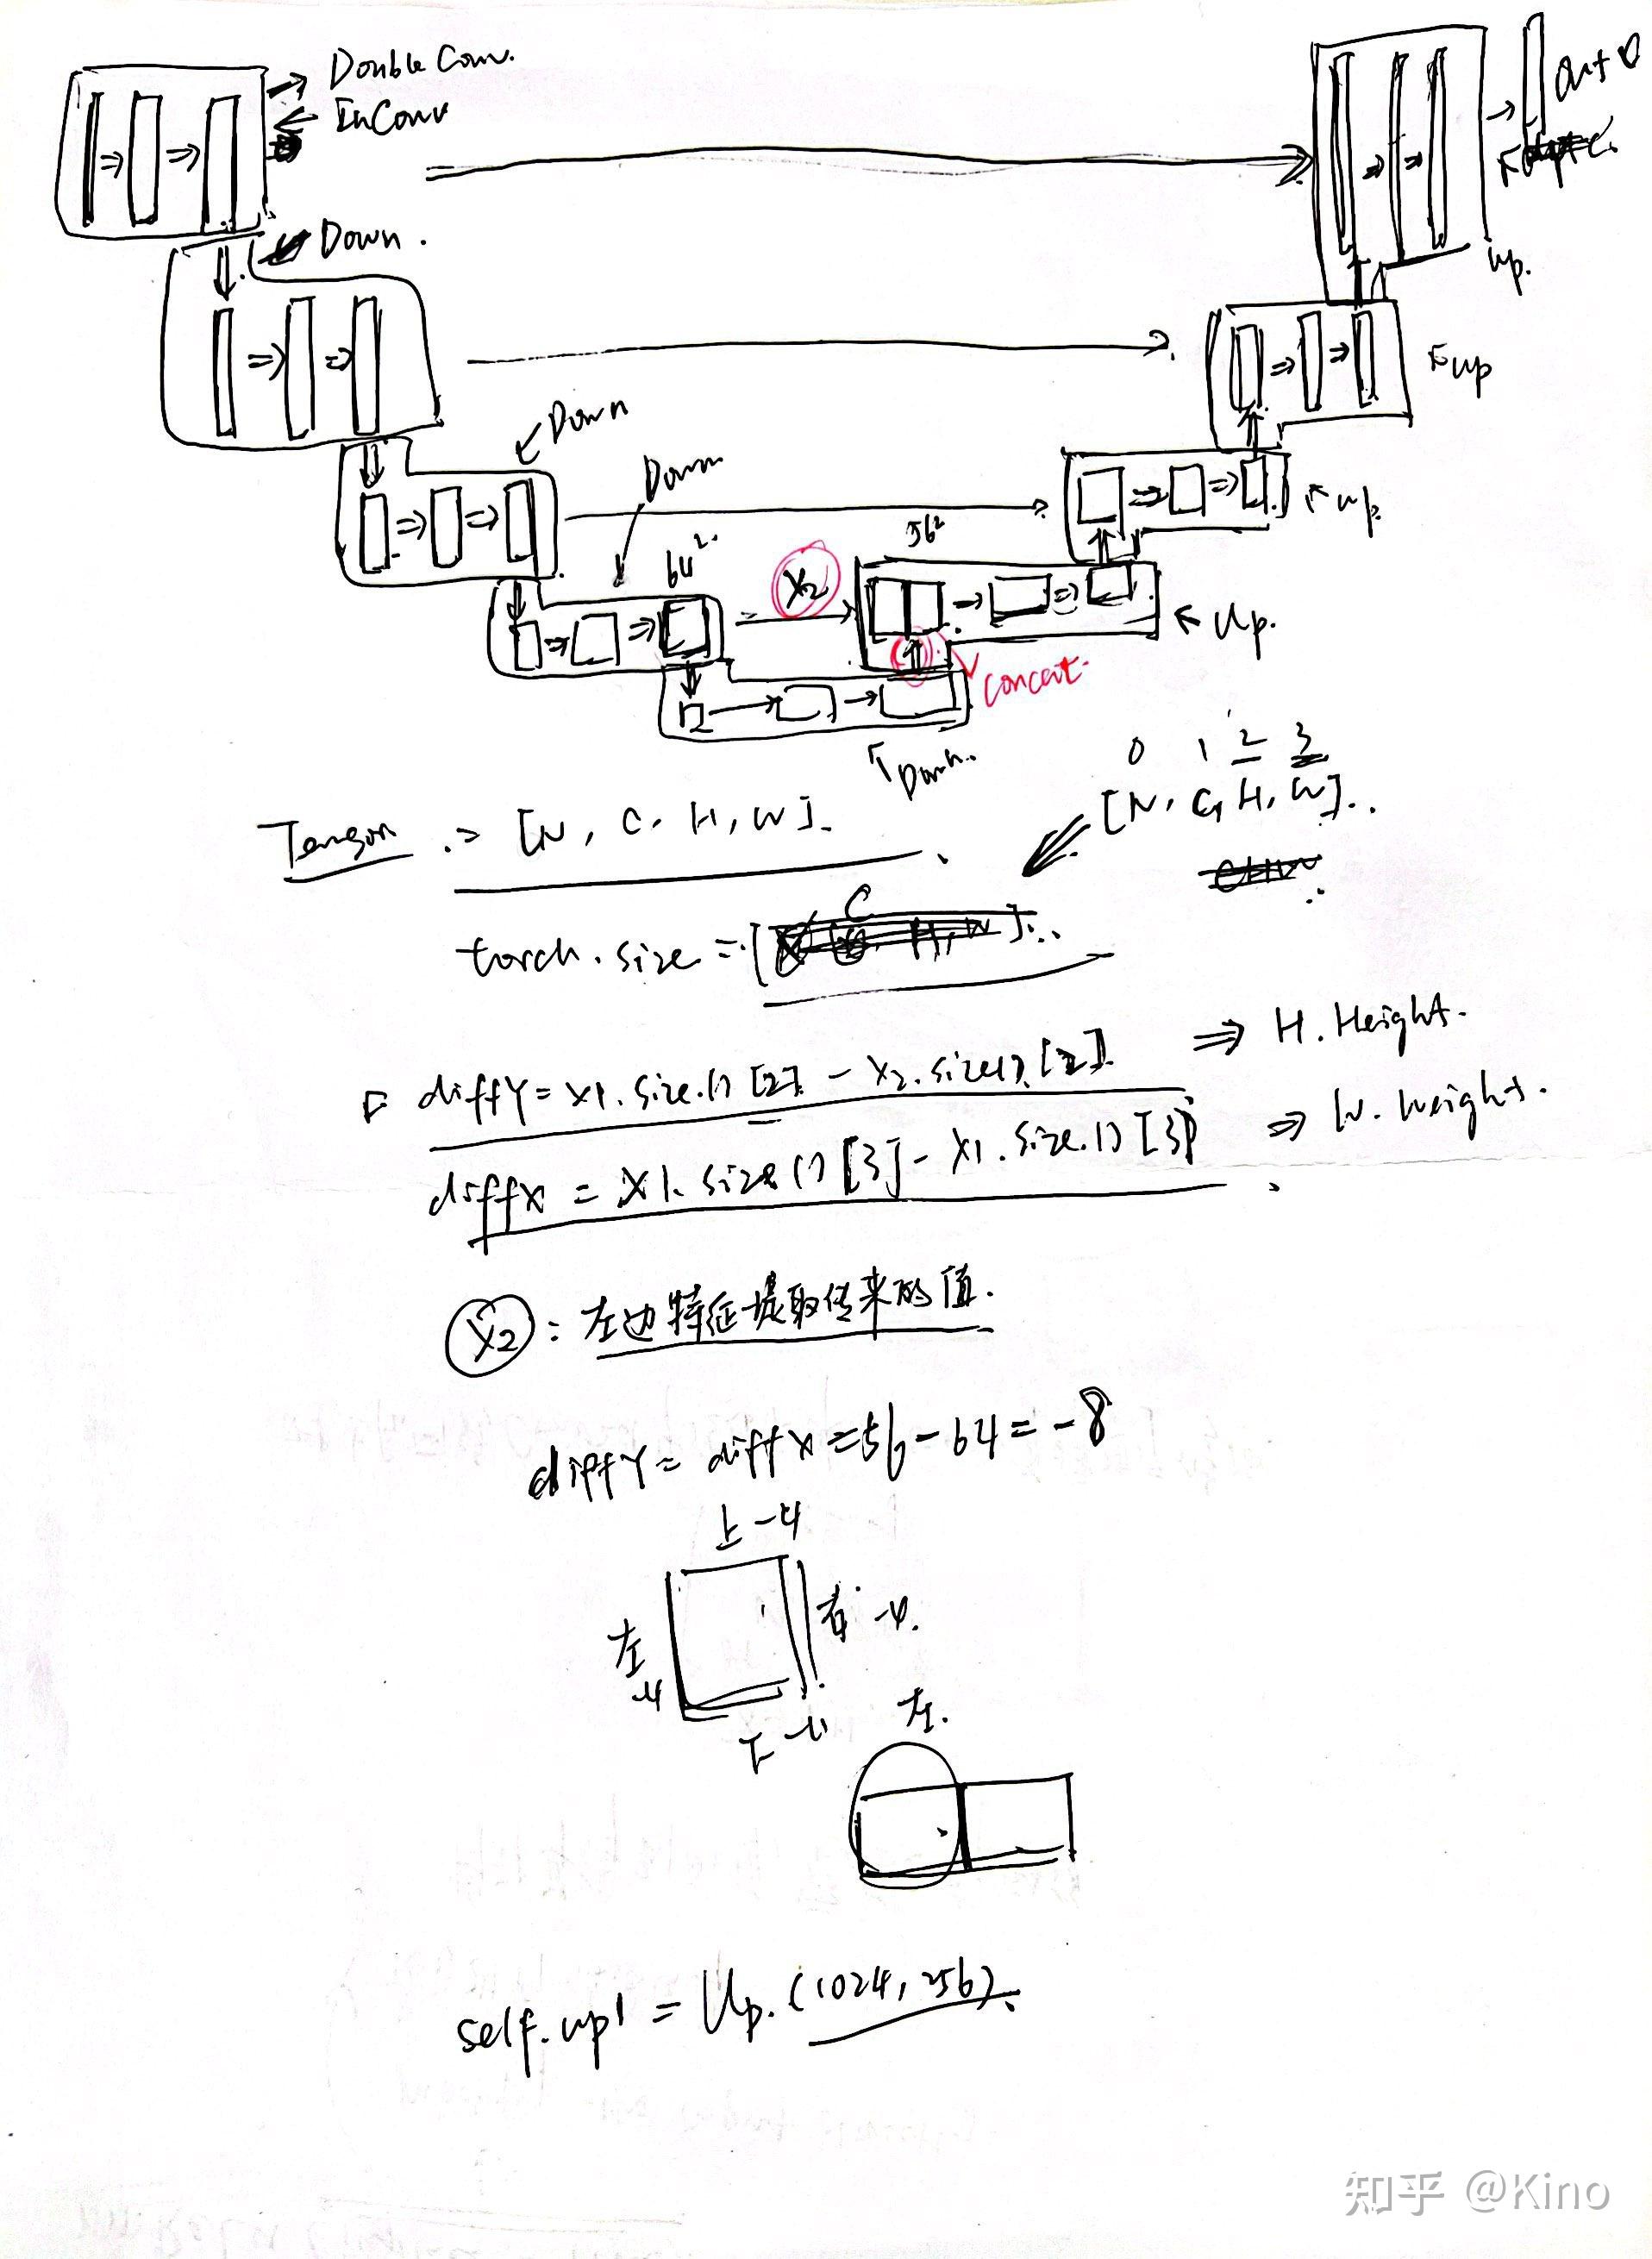 Double Conv.
InConv
Out
Down.
up.
up
Down
Down
up.
64²
X2
56²
Up.
concat.
Down.
0 1 2 3
Tensor : [N, C, H, W].
[N, C, H, W]..
CHW
torch.size = [ C H, W]..
diffY = x1.size() [2] - x2.size() [2] ⇒ H. Height.
diffX = x1.size() [3] - x1.size() [3] ⇒ W. Weight.
X2 : 左边特征提取传来的值.
diffY = diffX = 56 - 64 = -8
上 -4
左 右 -4.
-4
下 -4
左.
self.up1 = Up.(1024, 256).
知乎 @Kino